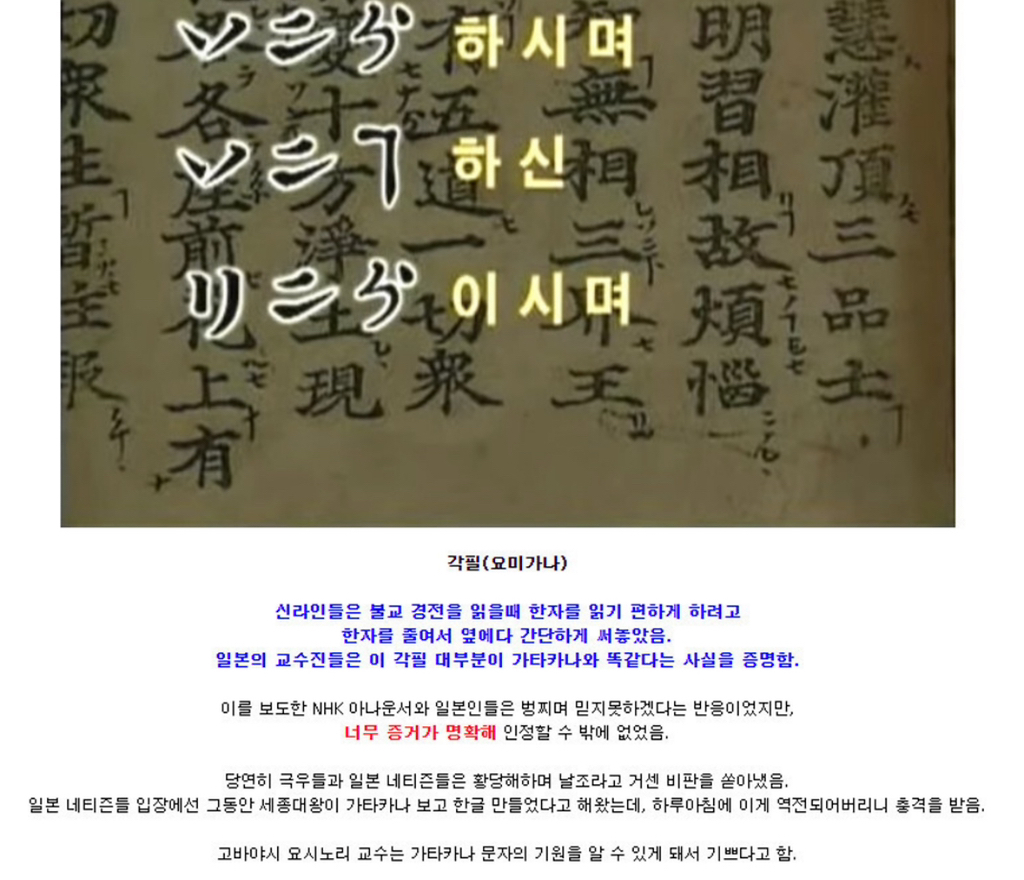 ソニ分 하시며
ソニㄱ 하신
リニ分 이시며
慧灌頂三品士
明習相故煩惱
無相三界王
有五道一切衆
十方淨土現
各座前花上有
切衆生暫主報
각필(요미가나)
신라인들은 불교 경전을 읽을때 한자를 읽기 편하게 하려고
한자를 줄여서 옆에다 간단하게 써놓았음.
일본의 교수진들은 이 각필 대부분이 가타카나와 똑같다는 사실을 증명함.
이를 보도한 NHK 아나운서와 일본인들은 벙찌며 믿지못하겠다는 반응이었지만,
너무 증거가 명확해 인정할 수 밖에 없었음.
당연히 극우들과 일본 네티즌들은 황당해하며 날조라고 거센 비판을 쏟아냈음.
일본 네티즌들 입장에선 그동안 세종대왕이 가타카나 보고 한글 만들었다고 해왔는데, 하루아침에 이게 역전되어버리니 충격을 받음.
고바야시 요시노리 교수는 가타카나 문자의 기원을 알 수 있게 돼서 기쁘다고 함.